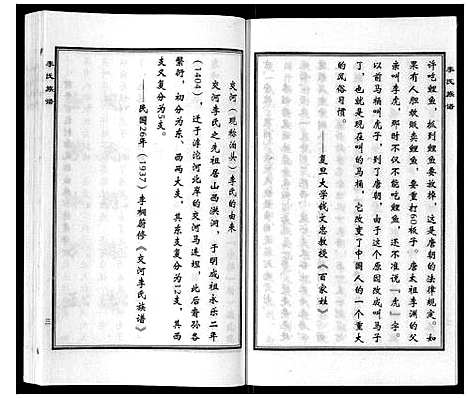 李氏族谱
许吃鲤鱼,抓到鲤鱼要放掉,这是唐朝的法律规定。如
果有人胆敢贩卖鲤鱼,要重打60板子。唐太祖李渊的父
亲叫李虎,那时不仅不能吃鲤鱼,还不准说“虎”字。
以前马桶叫虎子,到了唐朝,由于这个原因改成叫马子
了,也就是现在叫的马桶,它改变了中国人的一个重大
的风俗习惯。
复旦大学钱文忠教授《百家姓》
交河(现称泊头)李氏的由来
交河李氏之先祖居山西洪洞,于明成祖永乐二年
(1404),迁于滹沱河北岸的交河马连坦,此后裔孙各
繁衍,初分为东、西两大支,其东支复分为12支,其西
支又复分为5支。
——民国26年(1937)李桐蔚修《交河李氏族谱》
李氏族谱
三